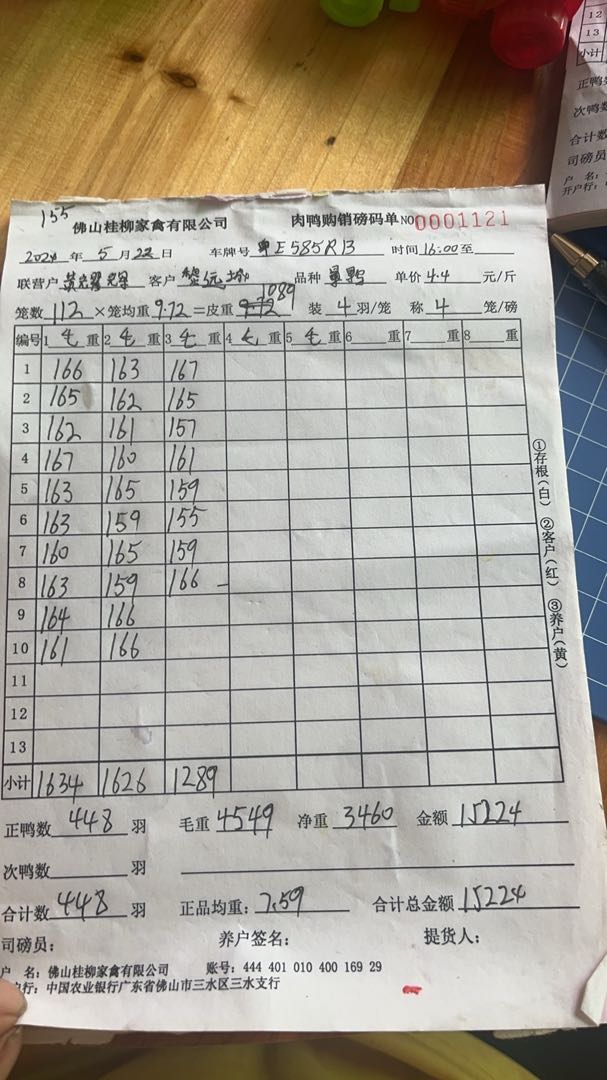 155
佛山桂柳家禽有限公司 肉鸭购销磅码单 NO 0001121
2024 年 5 月 23 日 车牌号 粤E585R13 时间 16:00 至
联营户 客户 品种 单价 4.4 元/斤
1089
笼数 112 ×笼均重 9.72 =皮重 装 4 羽/笼 称 4 笼/磅
编号 1 毛 重 2 毛 重 3 毛 重 4 毛 重 5 毛 重 6 重 7 重 8 重
1 166 163 167
2 165 162 165
3 162 161 157
4 167 160 161
5 163 165 159
6 163 159 155
7 160 165 159
8 163 159 166 –
9 164 166
10 161 166
11
12
13
小计 1634 1626 1289
①存根(白) ②客户(红) ③养户(黄)
正鸭数 448 羽 毛重 4549 净重 3460 金额 15224
次鸭数 羽
合计数 448 羽 正品均重: 7.59 合计总金额 15224
司磅员: 养户签名: 提货人:
户 名: 佛山桂柳家禽有限公司 账号: 444 401 010 400 169 29
户行: 中国农业银行广东省佛山市三水区三水支行
12
13
小计
正鸭数
次鸭数
合计数
司磅员
户 名:
开户行: